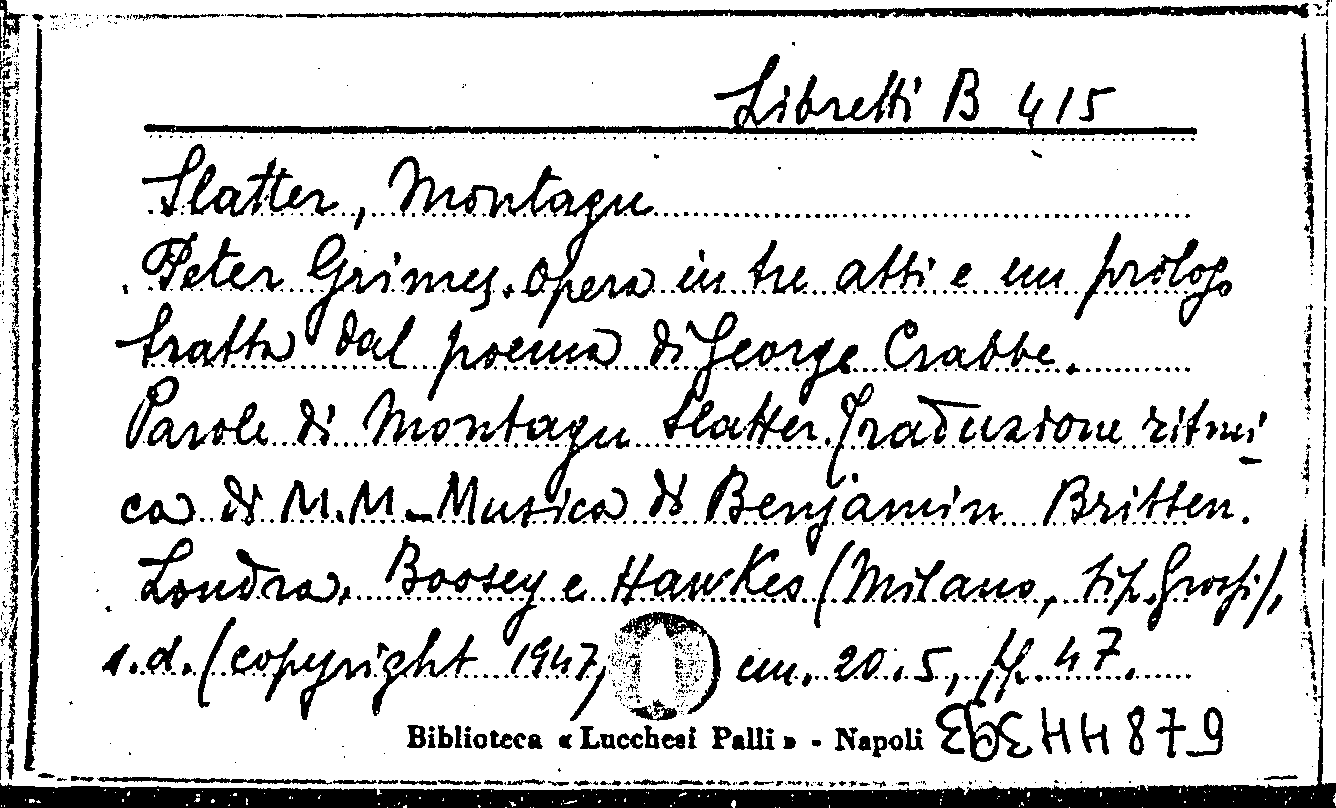 Libretti B 415
Slatter, Montagu
Peter Grimes. Opera in tre atti e un prologo
tratta dal poema di George Crabbe.
Parole di Montagu Slatter. Traduzione ritmi
ca di M.M. - Musica di Benjamin Britten.
Londra, Boosey e Hawkes (Milano, tip.
s.d. (copyright 1947, cm. 20.5, pp. 47.
Biblioteca « Lucchesi Palli » - Napoli